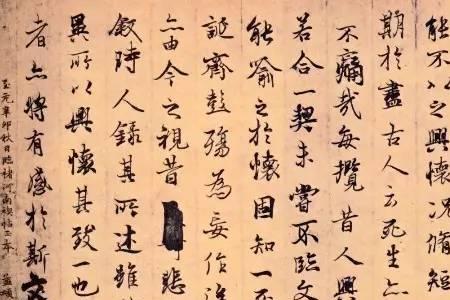 能不以之興懷況脩短
期於盡古人云死生
不痛哉每攬昔人興
若合一契未嘗不臨文
能喻之於懷固知一
誕齊彭殤為妄作
亦由今之視昔 悲
敘時人錄其所述雖
異所以興懷其致一也
者亦將有感於斯文
至元辛卯秋日臨褚河南禊帖 孟頫